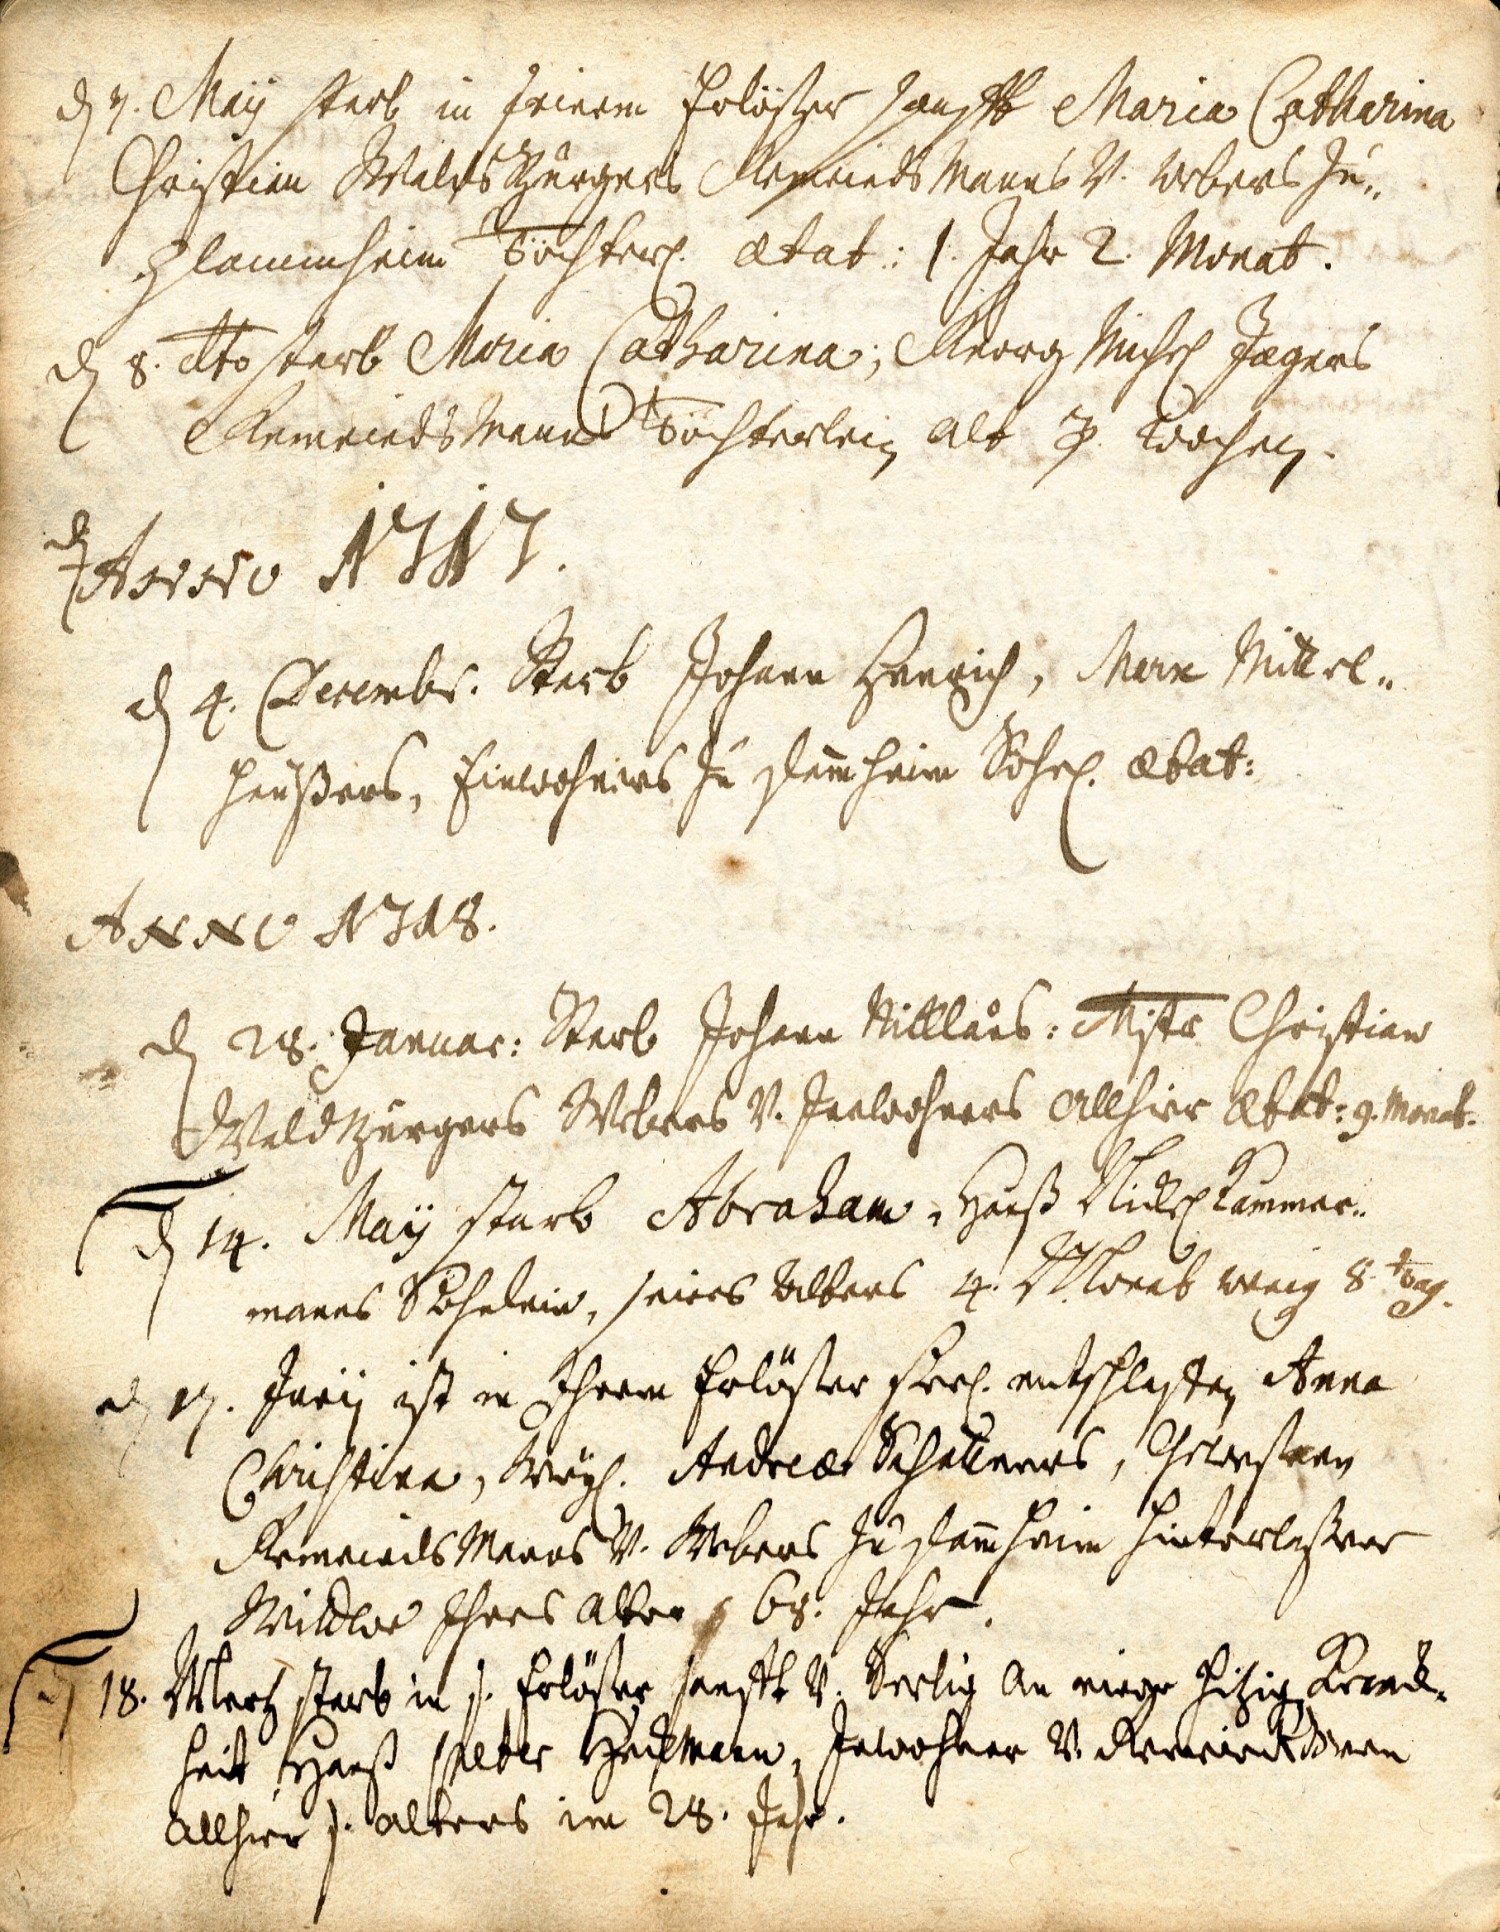 d 7. Maÿ starb in seinem Erlößer sanfft Maria Catharina
Christian Waldtzburgers Gemeindsmanns V. Webers zu..
Flammheim Töchterl. ætat: 1. Jahr 2. Monat.
d 8. dto starb Maria Catharina, Georg Michel Jægers
Gemeindsmanns Töchterlein alt 7. wochen.
d Anno 1717.
d 4. Decembr. Starb Johann Henrich, Marx Mittel..
heußers, Einwohners zu stammheim Söhnl. ætat:
ANNO 1718.
d 28. Januar: Starb Johann Nicklaus: Mstr Christian
Waldtzburgers Webers V. Innwohners allhier ætat: 9. Monat.
d 14. Maÿ starb Abraham, Hanß Nickel Zimmer..
manns Söhnlein, seines Alters 4. Monat wenig 8 tag.
d 17. Junij ist in Ihrem Erlößer seel. entschlaffen Anna
Christina, Weyl. Andreæ Schellners, Gewesenen
Gemeindsmanns V. Webers zu stammheim hinterlaßene
Wittwe Ihres alters 68. Jahr.
18. Mertz starb in s. Erlößer sanfft V. Seelig an einer hitzig Kranck..
heit Hanß Peter Heilmann, Inwohner V.
allhier s. alters im 28. Jahr.